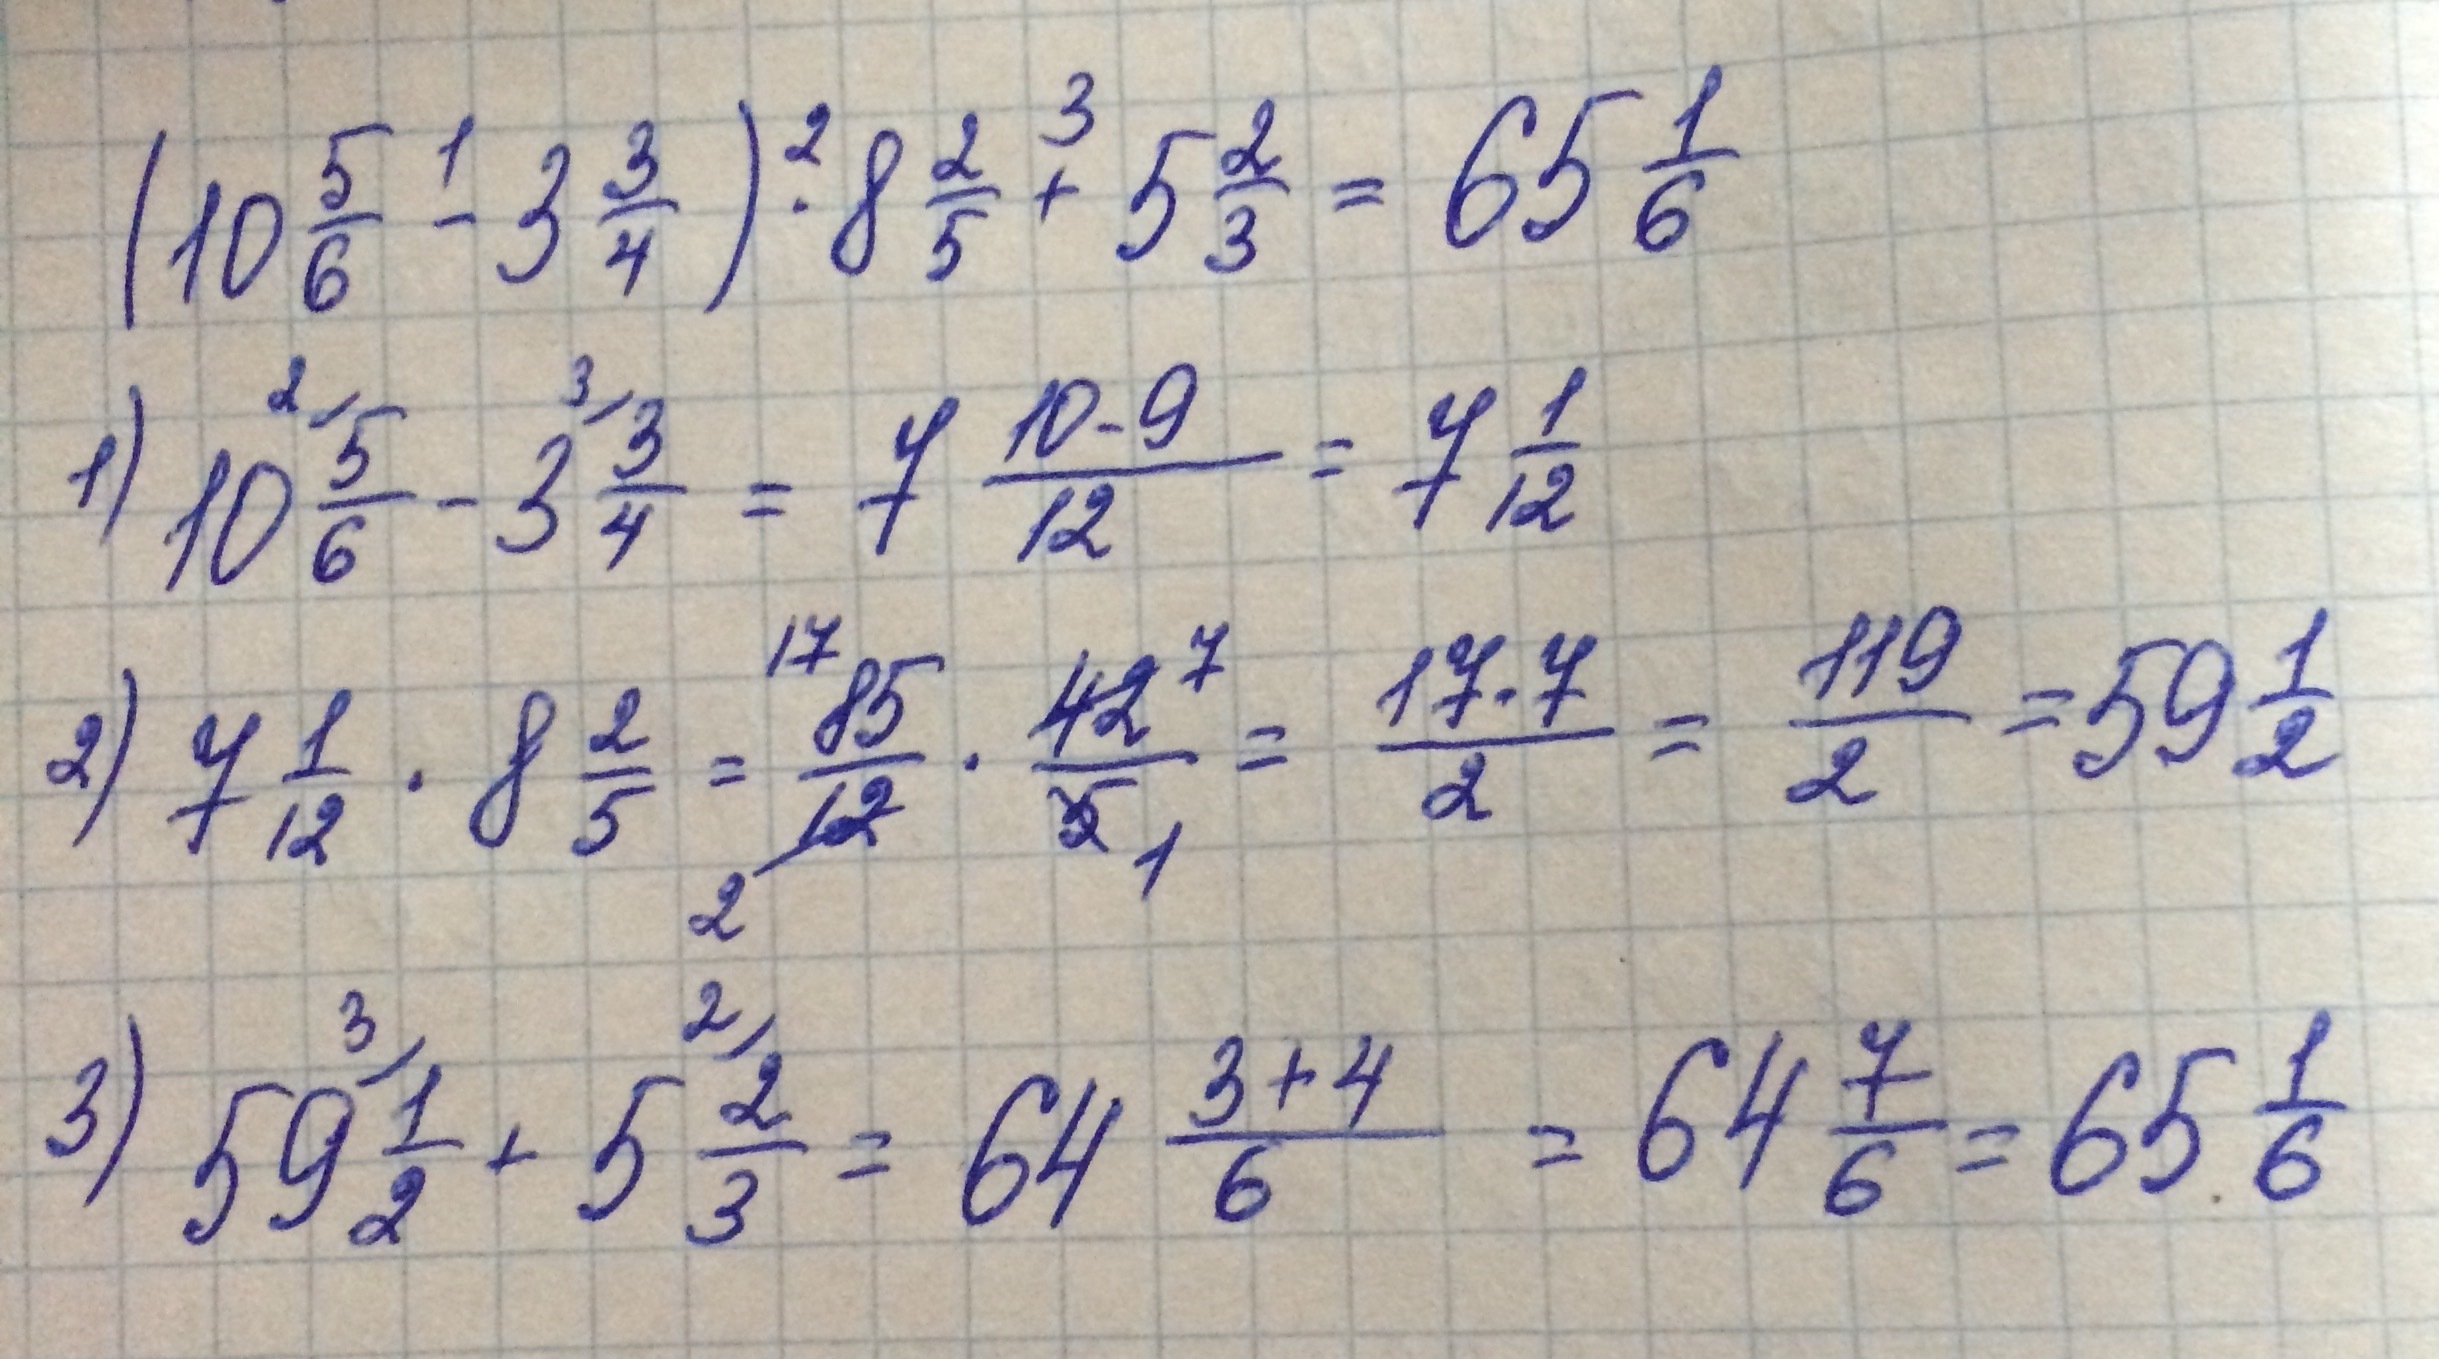 (10 5/6 ¹- 3 3/4) ²· 8 2/5 ³+ 5 2/3 = 65 1/6
1) 10 ²⁄ 5/6 - 3 ³⁄ 3/4 = 7 (10-9)/12 = 7 1/12
2) 7 1/12 · 8 2/5 = ¹⁷ 85/12 ₂ · 42 ⁷/5 ₁ = (17·7)/2 = 119/2 = 59 1/2
3) 59 ³⁄ 1/2 + 5 ²⁄ 2/3 = 64 (3+4)/6 = 64 7/6 = 65 1/6